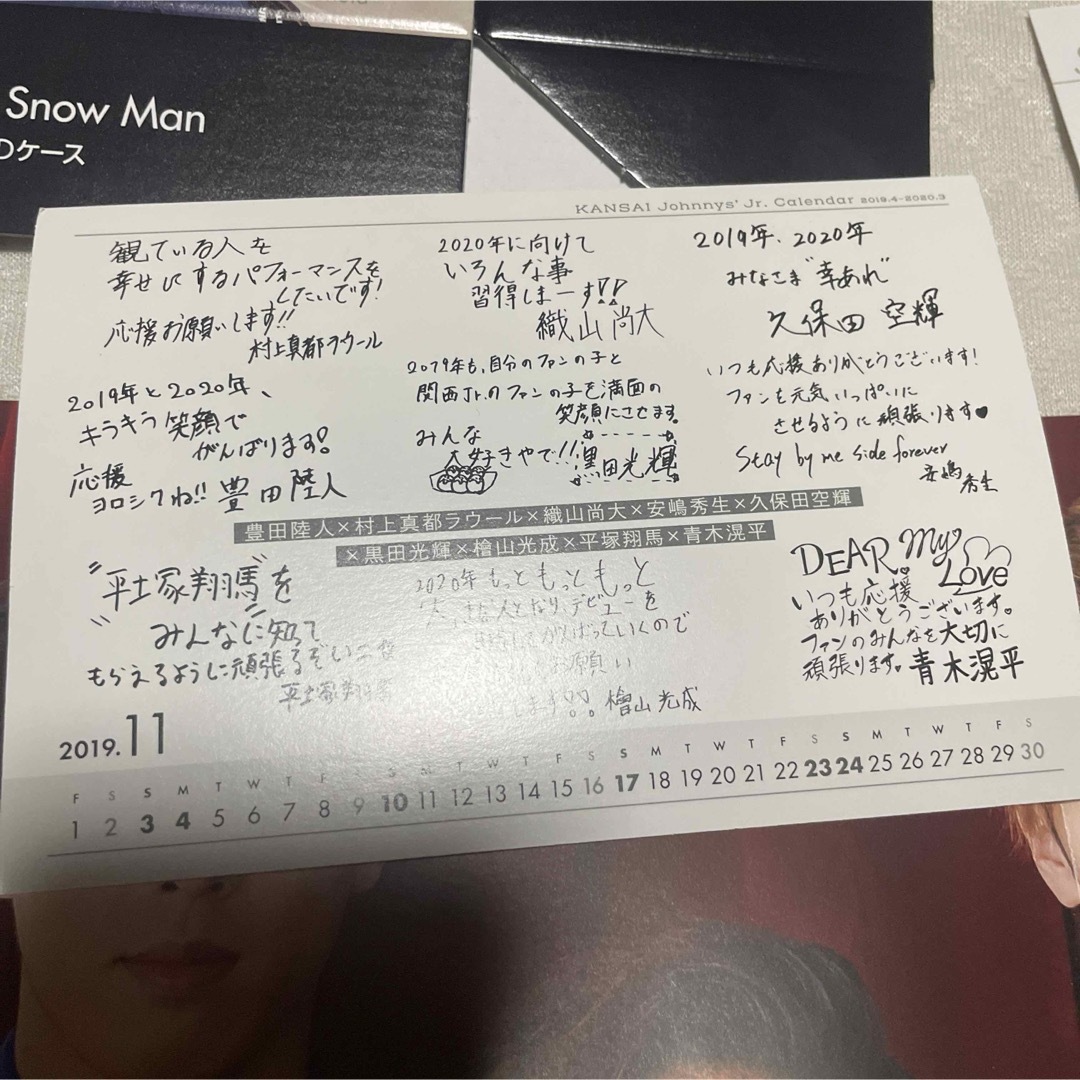 Snow Man
ケース
KANSAI Johnnys' Jr. Calendar 2019.4-2020.3
観ている人を
幸せにするパフォーマンスを
したいです!
応援お願いします!!
村上真都ラウール
2020年に向けて
いろんな事
習得しまーす!!
織山尚大
2019年、2020年
みなさま"幸あれ"
久保田 空輝
2019年と2020年、
キラキラ笑顔で
がんばります!
応援
ヨロシクね!! 豊田陸人
2019年も、自分のファンの子と
関西Jr.のファンの子を満面の
笑顔にさせます。
みんな
大好きやで!! 黒田光輝
いつも応援ありがとうございます!
ファンを元気いっぱいに
させるように頑張ります♥
Stay by me side forever
安嶋
秀生
豊田陸人×村上真都ラウール×織山尚大×安嶋秀生×久保田空輝
×黒田光輝×檜山光成×平塚翔馬×青木滉平
"平塚翔馬"を
みんなに知って
もらえるように頑張るぞい
平塚翔馬
2020年もっともっともっと
デビューを
がんばっていくので
お願い
します!! 檜山光成
DEAR. My Love
いつも応援
ありがとうございます。
ファンのみんなを大切に
頑張ります。青木滉平
2019.11
F S S M T W T F S S M T W T F S S M T W T F S S M T W T F S
1 2 3 4 5 6 7 8 9 10 11 12 13 14 15 16 17 18 19 20 21 22 23 24 25 26 27 28 29 30